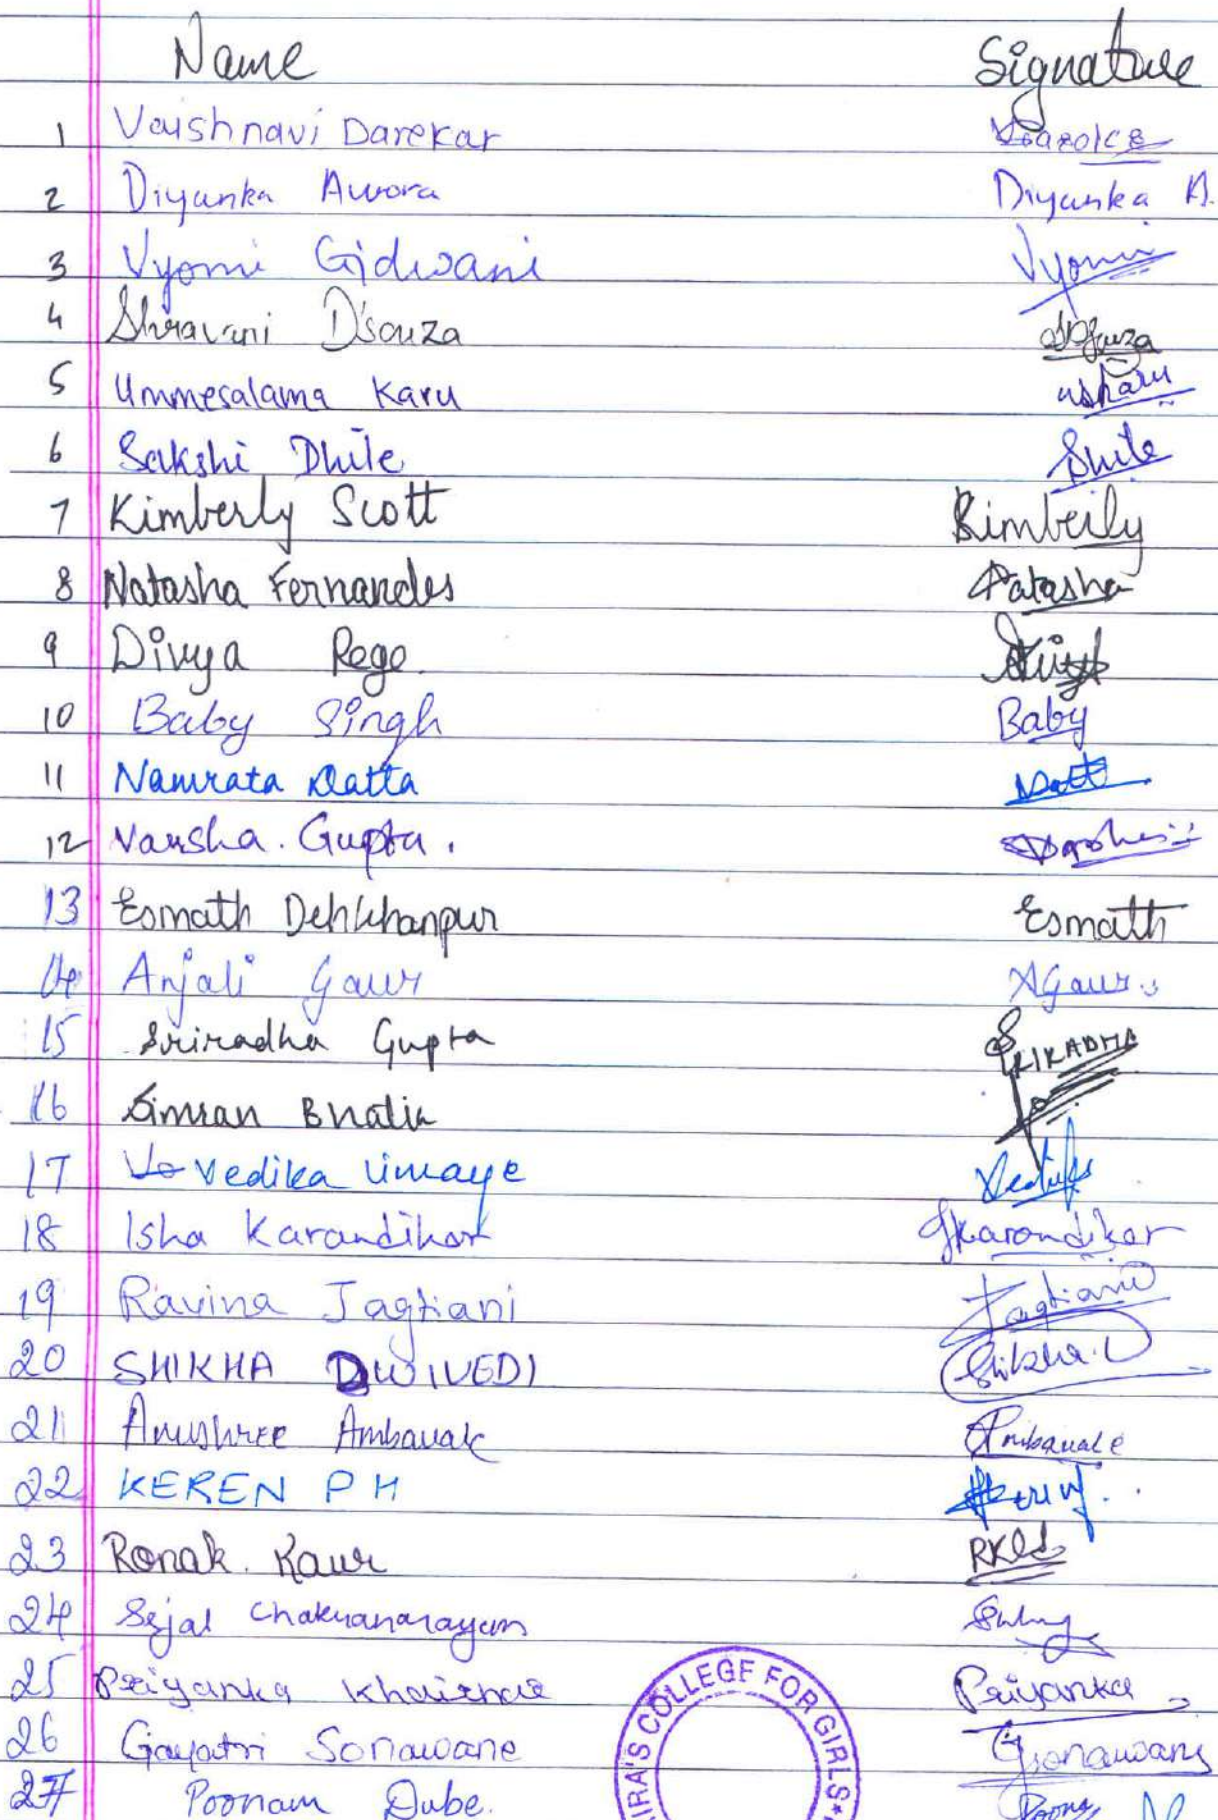 Name Signature
1 Vaishnavi Darekar
2 Diyanka Arora Diyanka A.
3 Vyomi Gidwani Vyomi
4 Shravani D'souza DSouza
5 Ummesalama Karu uskaru
6 Sakshi Dhile Dhile
7 Kimberly Scott Kimberly
8 Natasha Fernandes Natasha
9 Divya Rego.
10 Baby Singh Baby
11 Namrata Datta Datt
12 Varsha. Gupta.
13 Esmath Dehkhanpur Esmath
14 Anjali Gaur AGaur
15 Sriradha Gupta SRIRADHA
16 Simran Bhatia
17 Vedika Limaye
18 Isha Karandikar IKarandikar
19 Ravina Jagtiani Jagtiani
20 SHIKHA DWIVEDI Shikha.D
21 Anushree Ambavale Ambavale
22 KEREN P H
23 Ronak. Kaur
24 Sejal Chakranarayan
25 Priyanka Khairnar Priyanka
26 Gayatri Sonawane GSonawane
27 Poonam Dube.
IRA'S COLLEGE FOR GIRLS*